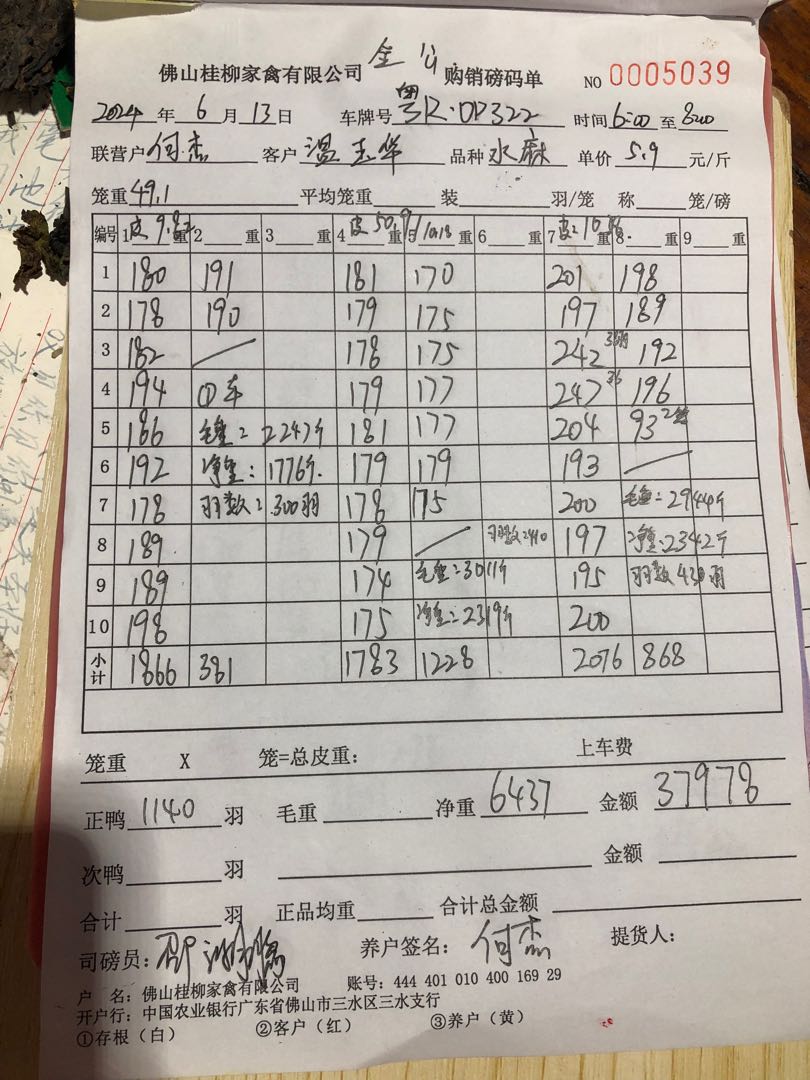 全公
佛山桂柳家禽有限公司 购销磅码单 NO 0005039
2024 年 6 月 13 日 车牌号 粤R·0P322 时间 6:00 至 8:00
联营户 何杰 客户 温玉华 品种 水麻 单价 5.9 元/斤
笼重 49.1 平均笼重 装 羽/笼 称 笼/磅
编号 1皮 9.8 重 2 重 3 重 4皮 50.9 重 5/10.18 重 6 重 7皮: 10 重 8. 重 9 重
1 180 191 181 170 201 198
2 178 190 179 175 197 189
3 182 178 175 242 192
4 194 ①车 179 177 247 36 196
5 186 毛重: 2247斤 181 177 204 93 2笼
6 192 净重: 1776斤. 179 179 193
7 178 羽数: 300羽 178 175 200 毛重: 2944斤
8 189 179 羽数: 410 197 净重: 2342斤
9 189 174 毛重: 3011斤 195 羽数 430羽
10 198 175 净重: 2319斤 200
小计 1866 381 1783 1228 2076 868
笼重 X 笼=总皮重: 上车费
正鸭 1140 羽 毛重 净重 6437 金额 37978
次鸭 羽 金额
合计 羽 正品均重 合计总金额
司磅员: 养户签名: 何杰 提货人:
户 名: 佛山桂柳家禽有限公司 账号: 444 401 010 400 169 29
开户行: 中国农业银行广东省佛山市三水区三水支行
①存根（白） ②客户（红） ③养户（黄）